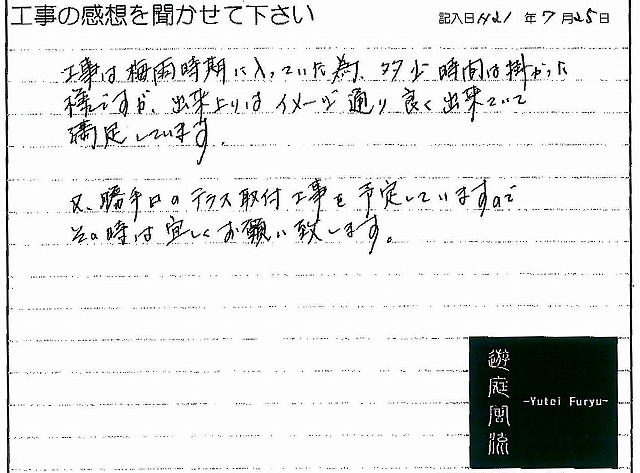 工事の感想を聞かせて下さい
記入日 H21 年 7 月 25 日
工事は梅雨時期に入っていた為、多少時間は掛かった
様ですが、出来上りはイメージ通り良く出来ていて
満足しています。
又、勝手口のテラス取付工事を予定していますので
その時は宜しくお願い致します。
遊庭風流
-Yutei Furyu-